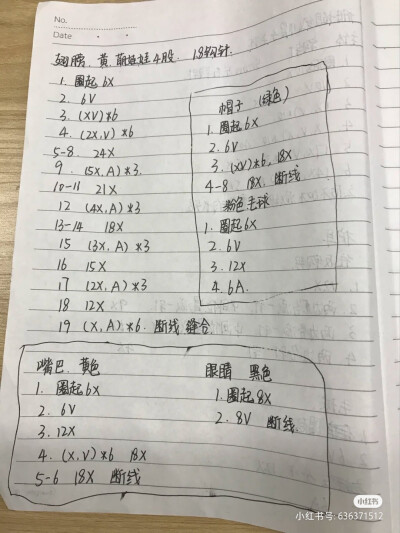 No.
Date
翅膀. 黄. 萌娃娃4股. 18钩针.
1. 圈起6X
2. 6V
3. (XV)*6
4. (2X,V)*6
5-8. 24X
9. (5X,A)*3.
10-11 21X
12 (4X,A)*3
13-14 18X
15 (3X,A)*3
16 15X
17 (2X,A)*3
18 12X
19 (X,A)*6. 断线 缝合
帽子 (绿色)
1. 圈起6X
2. 6V
3. (XV)*6, 18X
4-8 18X, 断线
粉色毛球
1. 圈起6X
2. 6V
3. 12X
4. 6A.
嘴巴. 黄色
1. 圈起6X
2. 6V
3. 12X
4. (X,V)*6 18X
5-6 18X 断线
眼睛 黑色
1. 圈起8X
2. 8V 断线.
小红书
小红书号: 636371512